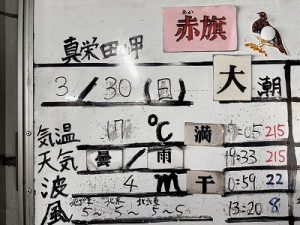 赤旗
あか
真栄田岬
3/30(日) 大潮
気温 17℃ 満 7:05 215
天気 曇/雨 19:33 215
波 4m 干 0:59 22
風 5〜 5〜 5〜5 13:20 8